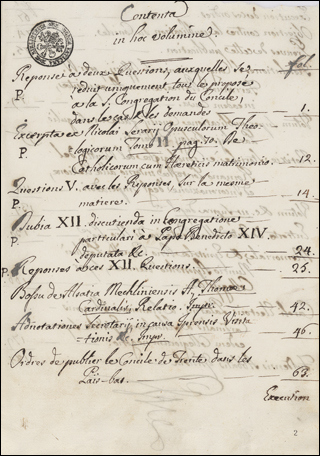 Contenta
in hoc volumine
fol.
Reponse à deux Questions, auxquelles se
P. reduit uniquement tout le proposé
a la S. Congregation du Concile,
dans les cas & les demandes 1.
Excerpta ex Nicolai Serarij Opusculorum Theo
P. logicorum Tomo II pag. 70. De
Catholicorum cum Haereticis matrimonio. 12.
Questions V. avec les Reponses, sur la mesme
P. matiere. 14.
Dubia XII. discutienda in Congregatione
P. particulari à Papa Benedicto XIV
deputata &c 24.
P. Reponses ab ces XII. Questions 25.
Bossu de Alsatia Mechliniensis A. Thomae
Cardinalis, Relatio. Impr. 42.
Adnotationes Secretarij in causa Iprensis Visita
tionis &c. Impr. 46.
Ordres de publier le Concile de Trente dans les
Païs-bas. 63.
Execution
2